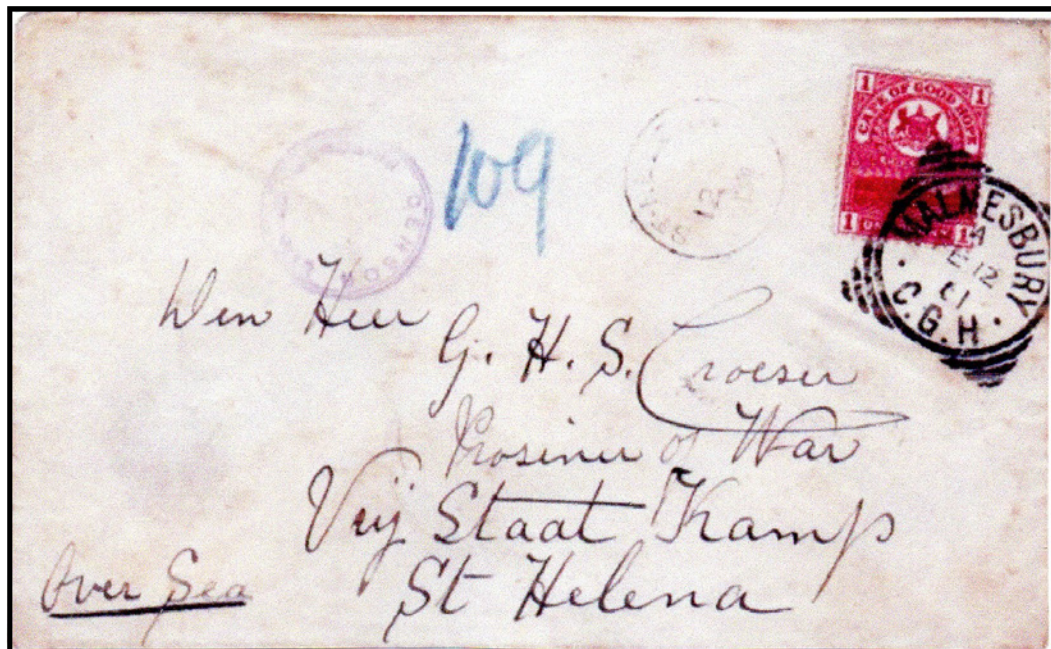 1 1
CAPE OF GOOD HOPE
1 1
MALMESBURY
A
FE 12
01
C.G.H.
CENSOR
109
12
Den Heer
G. H. S. Croeser
Prosiner of War
Vrij Staat Kamp
St Helena
Over Sea